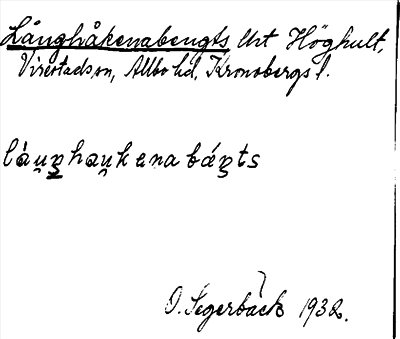 Långhåkenabengts urt Höghult,
Virestads sn, Allbo hd, Kronobergs l.
láu̯ŋhau̯kenabáŋts
O. Segerbäck 1932.